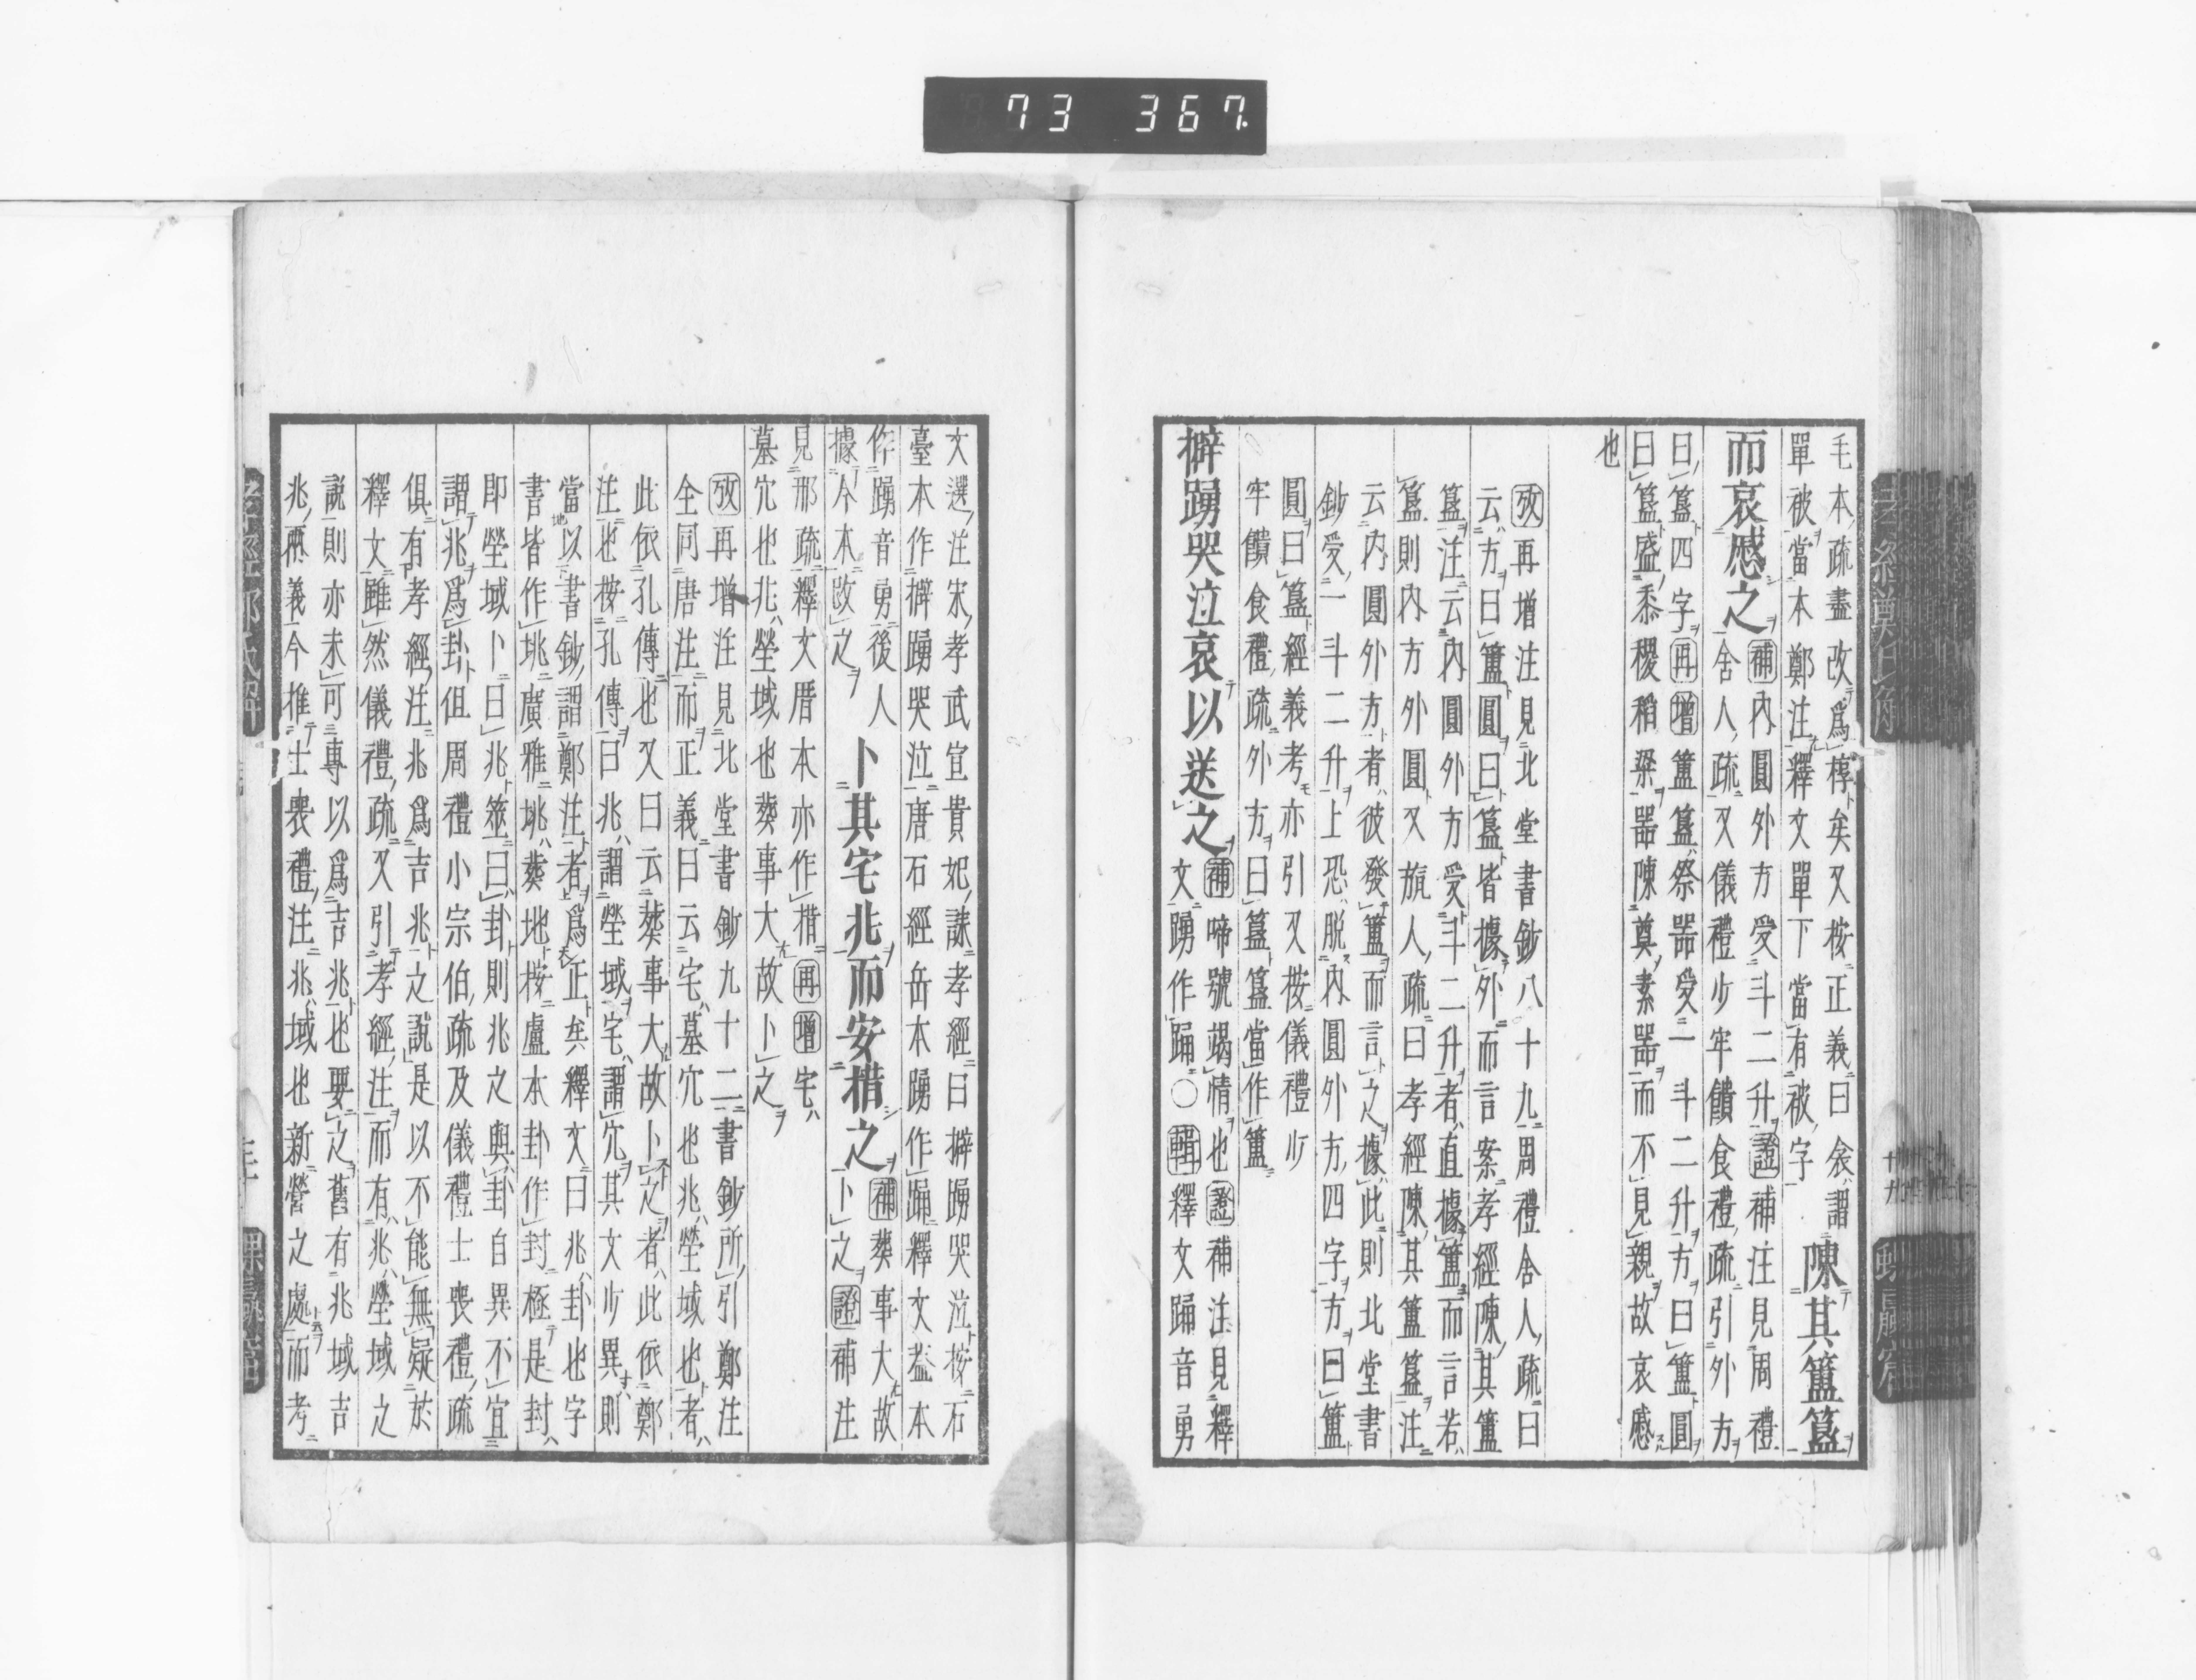 73 367.
毛本疏盡改爲椁矣又按正義曰衾謂
陳其簠簋
單被當本鄭注釋文單下當有被字
而哀慼之
補內圓外方受斗二升證補注見周禮
舍人疏又儀禮少牢饋食禮疏引外方
曰簋四字再增簠簋祭器受一斗二升方曰簠圓
曰簋盛黍稷稻粱器陳奠素器而不見親故哀慼
也
攷再增注見北堂書鈔八十九周禮舍人疏曰
云方曰簠圓曰簋皆據外而言案孝經陳其簠
簋注云內圓外方受斗二升者直據簠而言若
簋則內方外圓又旊人疏曰孝經陳其簠簋注
云內圓外方者彼發簠而言之據此則北堂書
鈔受一斗二升上恐脫內圓外方四字方曰簠
圓曰簋經義考亦引又按儀禮少
牢饋食禮疏外方曰簋簋當作簠
擗踊哭泣哀以送之
補啼號竭情也證補注見釋
文踊作踊○輯釋文踊音勇
文選注宋孝武宣貴妃誄孝經曰擗踊哭泣按石
臺本作擗踊哭泣唐石經岳本踊作踊釋文益本
作踊音勇後人
據今本改之
卜其宅兆而安措之
補葬事大故
卜之證補注
見邢疏釋文厝本亦作措再增宅
墓穴也兆塋域也葬事大故卜之
攷再增注見北堂書鈔九十二書鈔所引鄭注
全同唐注而正義曰云宅墓穴也兆塋域也者
此依孔傳也又曰云葬事大故卜之者此依鄭
注也按孔傳曰兆謂塋域宅謂穴其文少異則
當以書鈔謂鄭注者爲正矣釋文曰兆卦也字
書皆作垗廣雅垗葬地按盧本卦作封極是封
即塋域卜曰兆筮曰卦則兆之與卦自異不宜
謂兆爲卦但周禮小宗伯疏及儀禮士喪禮疏
俱有孝經注兆爲吉兆之說是以不能無疑於
釋文雖然儀禮疏又引孝經注而有兆塋域之
說則亦未可專以爲吉兆也要之舊有兆域吉
兆兩義今推士喪禮注兆域也新營之處而考